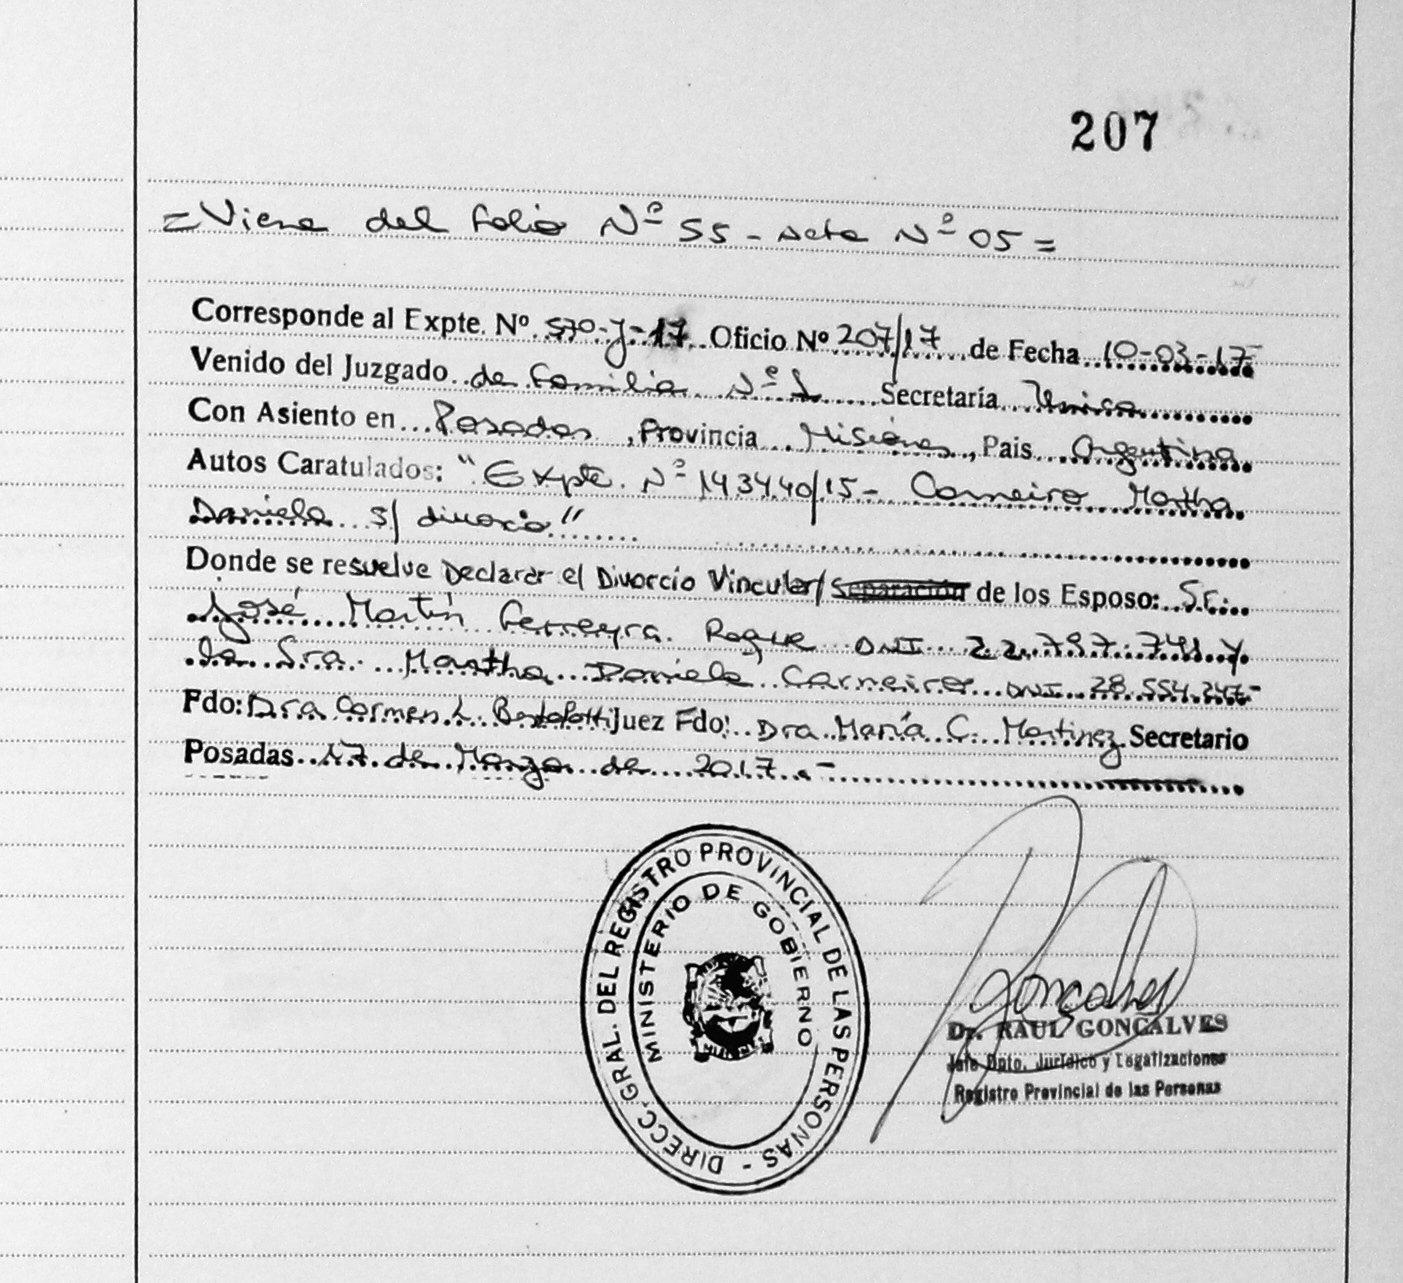 207
= Viene del folio Nº 55 - Acta Nº 05 =
Corresponde al Expte. Nº 570-J-17 Oficio Nº 207/17 de Fecha 10-03-17
Venido del Juzgado de Familia Nº 1 Secretaría Unica
Con Asiento en Posadas, Provincia Misiones, Pais Argentina
Autos Caratulados: "Expte. Nº 143440/15 - Carneiro Martha
Daniela s/ divorcio"
Donde se resuelve Declarar el Divorcio Vincular/Separación de los Esposo: Sr.
José Martín Ferreyra Roque DNI 22.797.741 y
la Sra. Martha Daniela Carneiro DNI 28.554.247-
Fdo: Dra Carmen L. Juez Fdo: Dra María C. Martinez Secretario
Posadas 17 de Marzo de 2017.-
DIRECC. GRAL. DEL REGISTRO PROVINCIAL DE LAS PERSONAS -
MINISTERIO DE GOBIERNO
Gonçalves
Dr. RAUL GONÇALVES
Jefe Dpto. Jurídico y Legalizaciones
Registro Provincial de las Personas